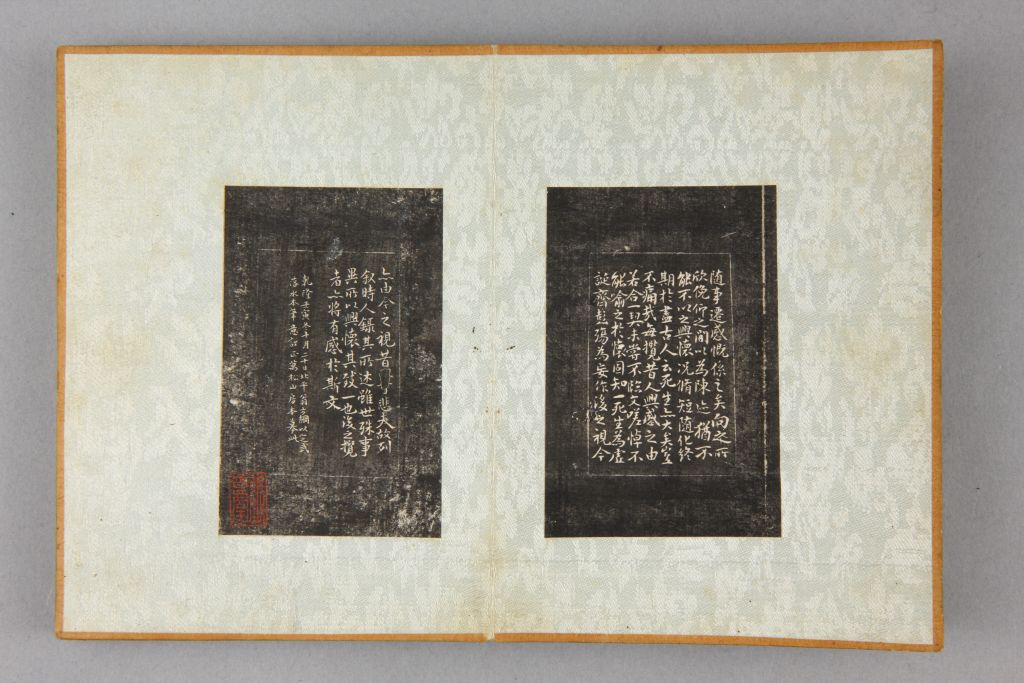 随事遷感慨係之矣向之所
欣俛仰之間以為陳迹猶不
能不以之興懷况脩短随化終
期於盡古人云死生亦大矣豈
不痛哉每攬昔人興感之由
若合一契未嘗不臨文嗟悼不
能喻之於懷固知一死生為虛
誕齊彭殤為妄作後之視今
亦由今之視昔悲夫故列
叙時人錄其所述雖世殊事
異所以興懷其致一也後之攬
者亦將有感於斯文
乾隆壬寅冬月二十日北平翁方綱以定武
落水本筆意訂正萬松山房本摹此